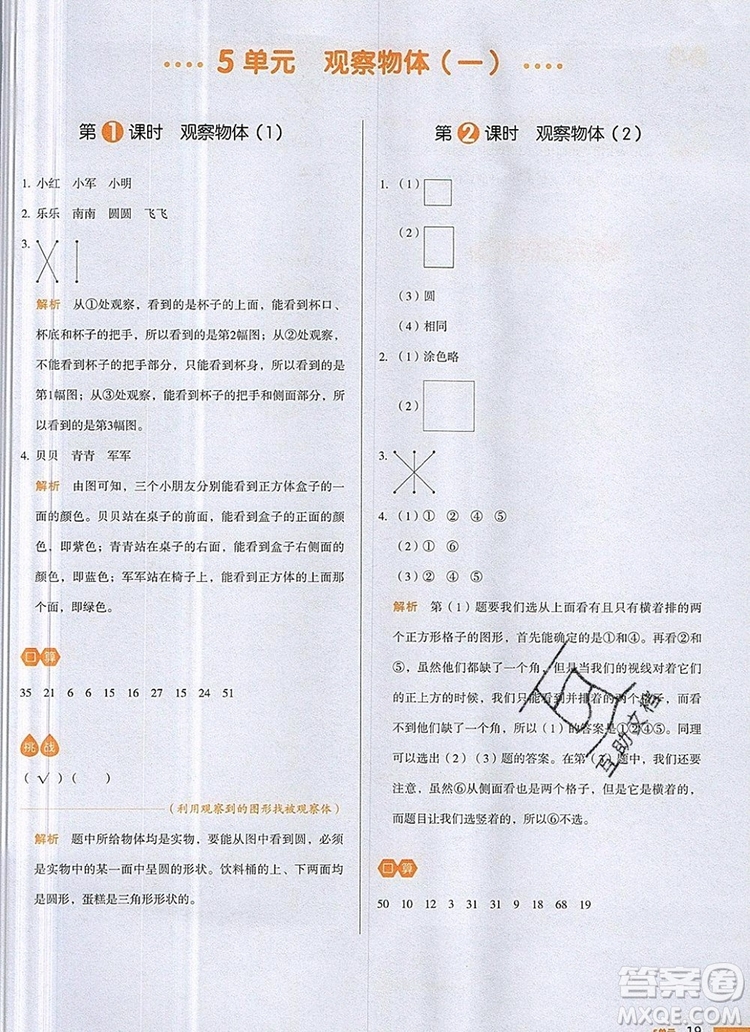 5单元 观察物体(一)
第1课时 观察物体(1)
1. 小红 小军 小明
2. 乐乐 南南 圆圆 飞飞
3.
解析 从①处观察,看到的是杯子的上面,能看到杯口、
杯底和杯子的把手,所以看到的是第2幅图;从②处观察,
不能看到杯子的把手部分,只能看到杯身,所以看到的是
第1幅图;从③处观察,能看到杯子的把手和侧面部分,所
以看到的是第3幅图。
4. 贝贝 青青 军军
解析 由图可知,三个小朋友分别能看到正方体盒子的一
面的颜色。贝贝站在桌子的前面,能看到盒子的正面的颜
色,即紫色;青青站在桌子的右面,能看到盒子右侧面的
颜色,即蓝色;军军站在椅子上,能看到正方体的上面,
即绿色。
口算
35 21 6 15 16 27 15 24 51
挑战
(√)( )
(利用观察到的图形找被观察体)
解析 题中所给物体均是实物,要能从图中看到圆,必须
是实物中的某一面中呈圆的形状。饮料桶的上、下两面均
是圆形,蛋糕是三角形形状的。
第2课时 观察物体(2)
1. (1)
(2)
(3)圆
(4)相同
2. (1)涂色略
(2)
3.
4. (1)① ② ④ ⑤
(2)① ⑥
(3)② ④ ⑤
解析 第(1)题要我们选从上面看有且只有横着排的两
个正方形格子的图形,首先能确定的是①和④。再看②和
⑤,虽然它们都缺了一个角,但是当我们的视线对着它们
的正上方的时候,我们只能看到横着的两个格子,并不能
看到它们缺了一个角,所以(1)的答案是①②④⑤。同理
可以选出(2)(3)题的答案。在第(3)题中,我们还要
注意,虽然⑥从侧面看也是两个格子,但是是横着的,而
题目让我们选竖着的,所以⑥不选。
口算
50 10 12 3 1 9 18 68 19
互助文档
答案圈
MXQE.COM
5单元 19